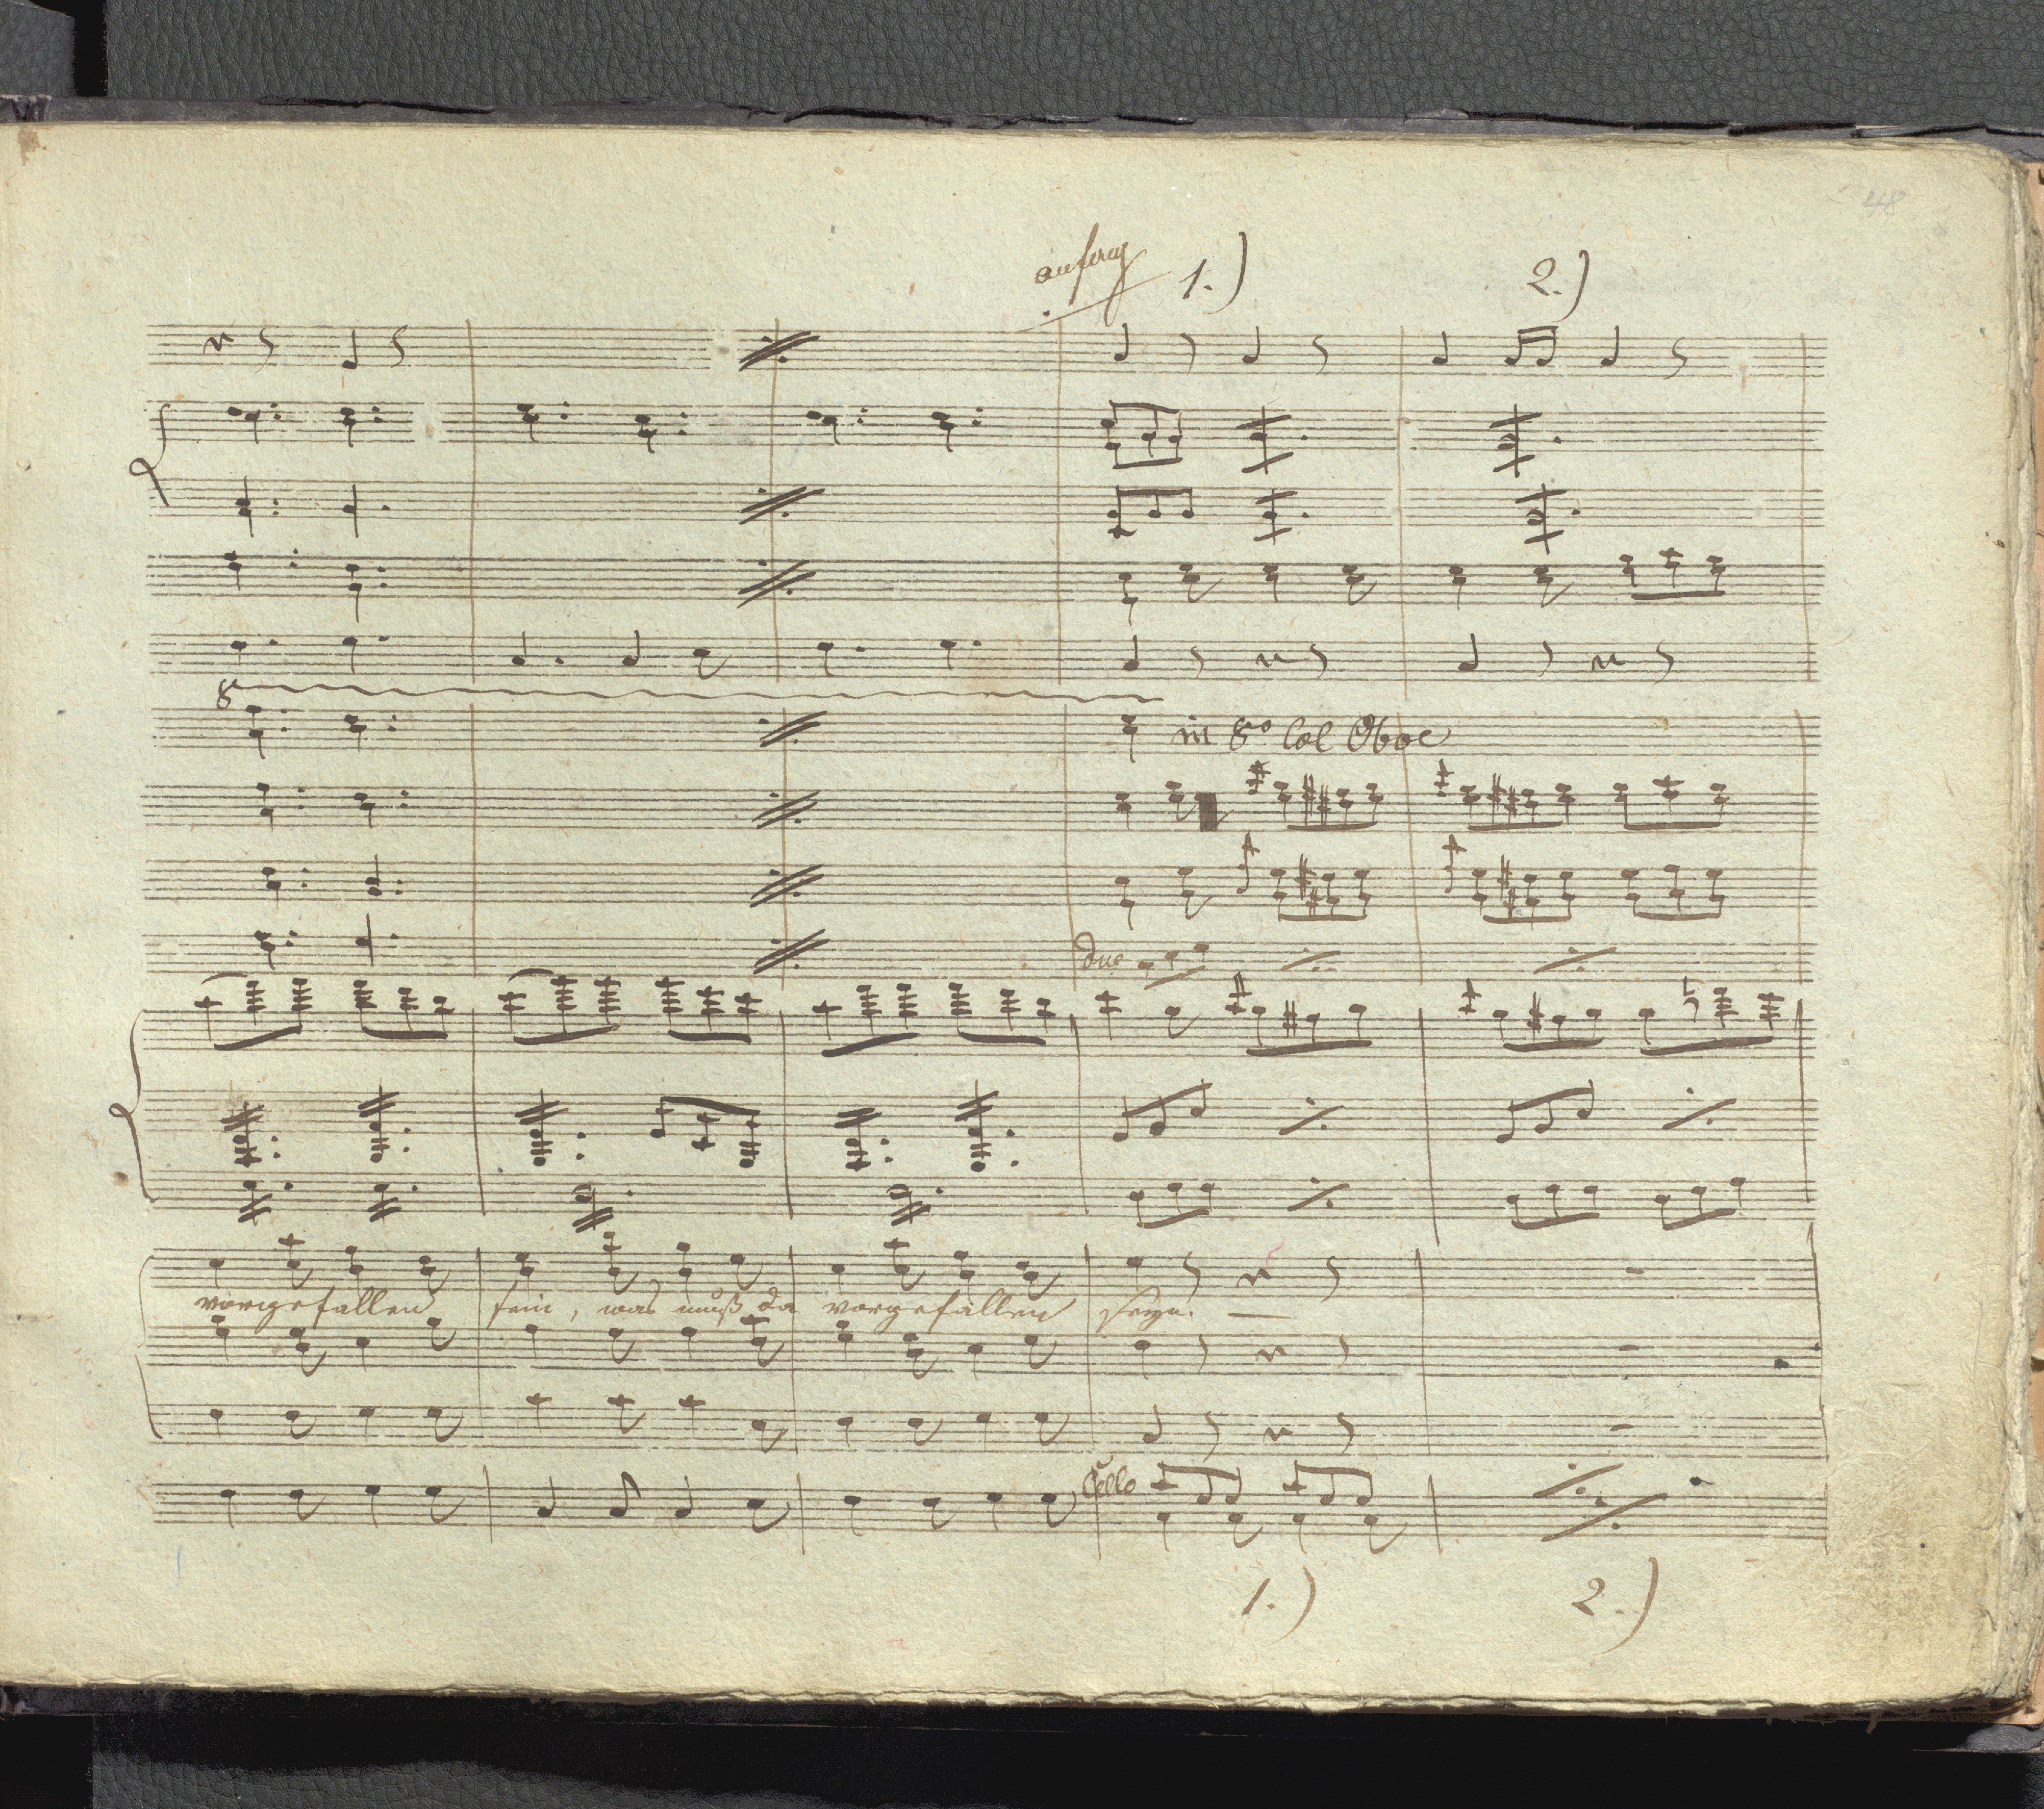 48
anfang 1.) 2.)
8
in 8º Col Oboe
due
vorgefallen sein, was muß da vorgefallen seyn. —
Cello
1.) 2.)